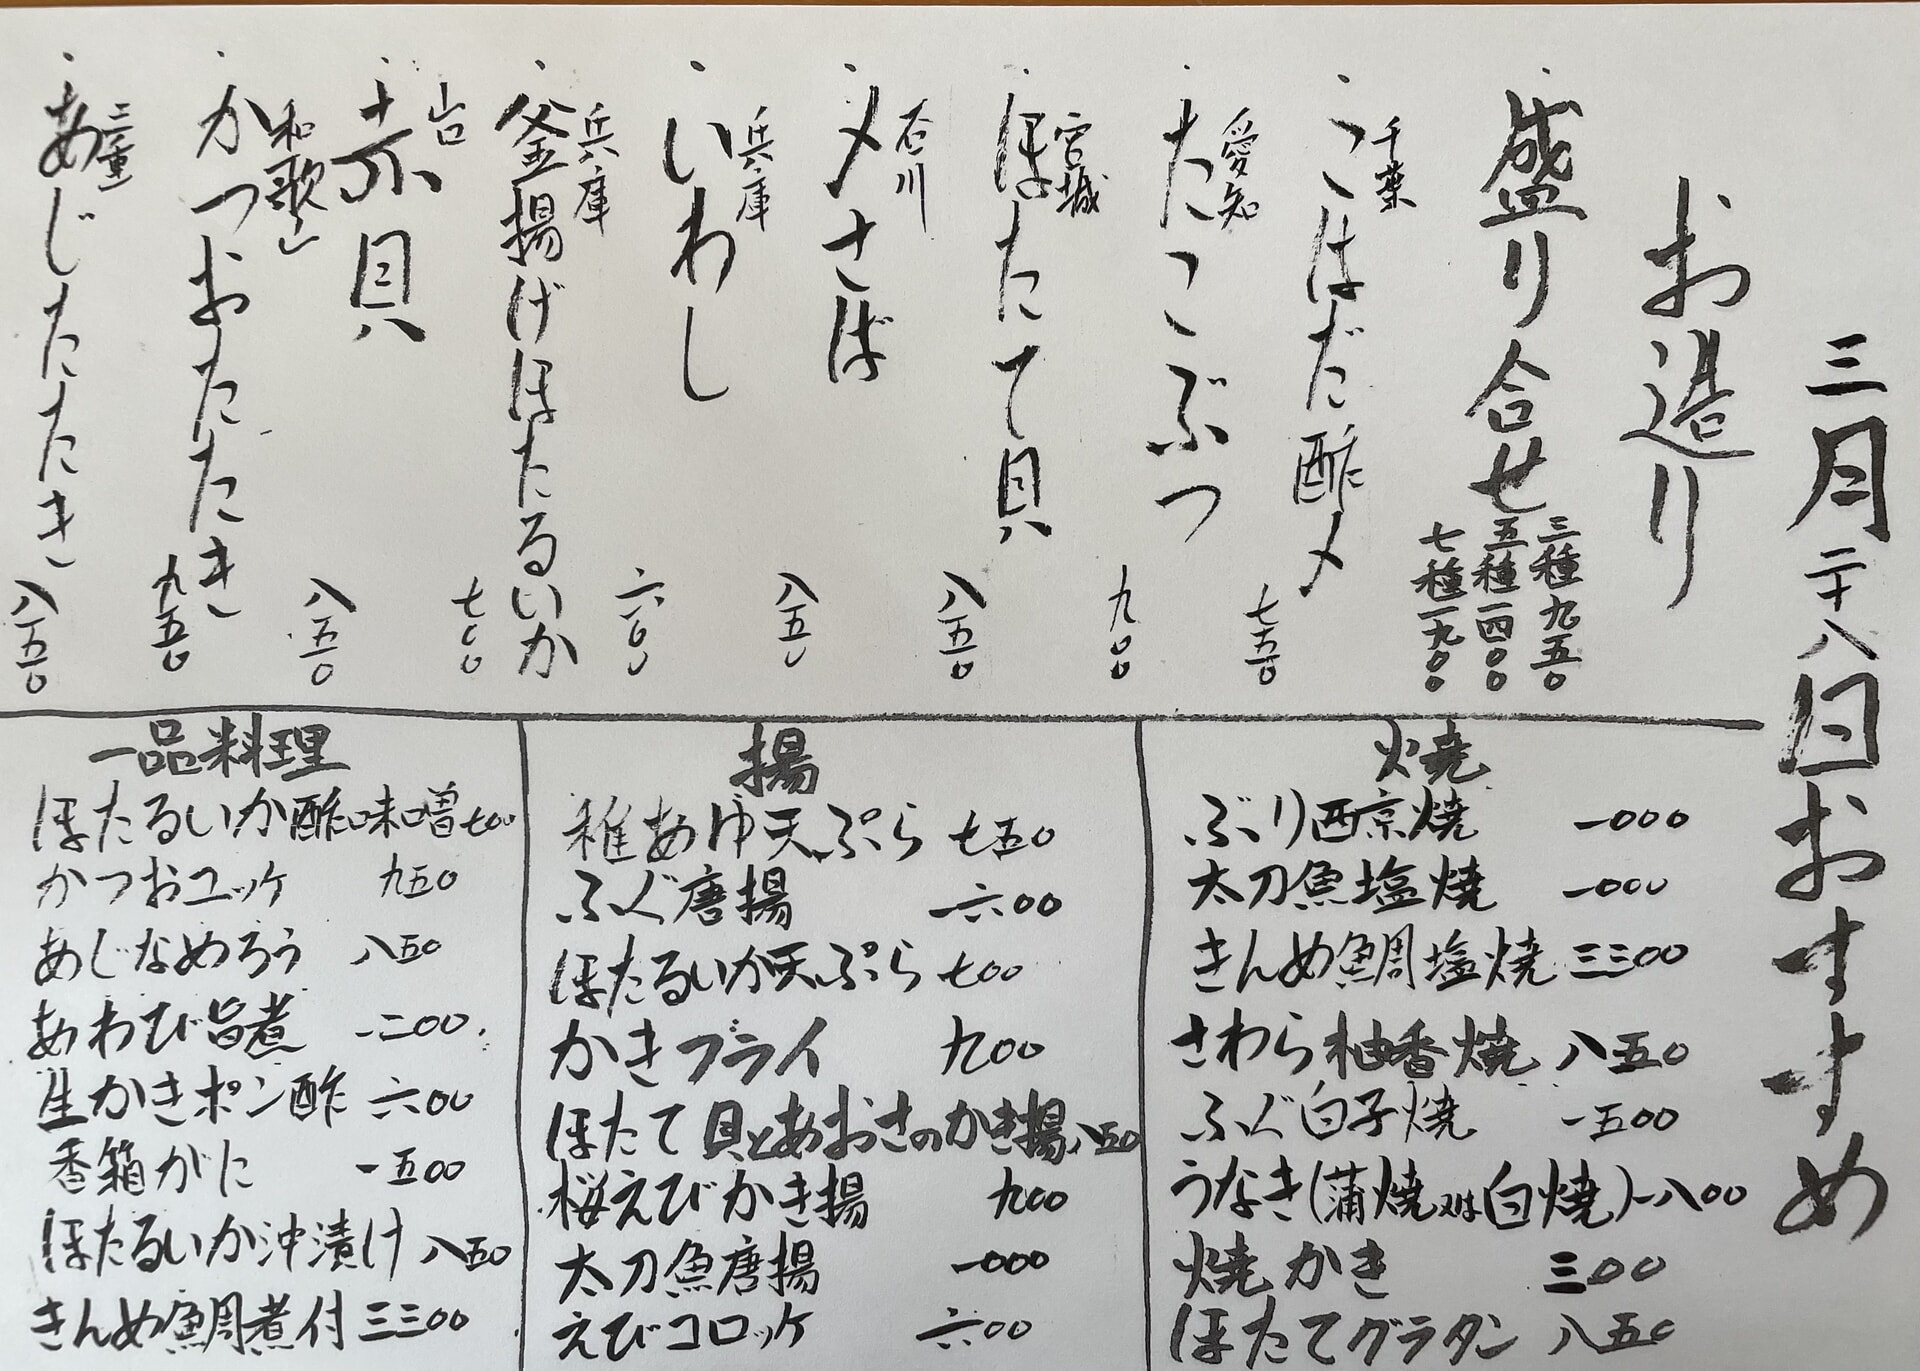 三月二十八日おすすめ
お造り
・盛り合せ
三種九五〇
五種一四〇〇
七種一九〇〇
千葉
・こはだ酢〆 七五〇
愛知
・たこぶつ 九〇〇
宮城
・ほたて貝 八五〇
石川
・〆さば 八五〇
兵庫
・いわし 六〇〇
兵庫
・釜揚げほたるいか 七〇〇
山口
・赤貝 八五〇
和歌山
・かつおたたき 九五〇
三重
・あじたたき 八五〇
焼
ぶり西京焼 一〇〇〇
太刀魚塩焼 一〇〇〇
きんめ鯛塩焼 三三〇〇
さわら柚香焼 八五〇
ふぐ白子焼 一五〇〇
うなき(蒲焼又は白焼)一八〇〇
焼かき 三〇〇
ほたてグラタン 八五〇
揚
稚あゆ天ぷら 七五〇
ふぐ唐揚 一六〇〇
ほたるいか天ぷら 七〇〇
かきフライ 九〇〇
ほたて貝とあおさのかき揚 八五〇
桜えびかき揚 九〇〇
太刀魚唐揚 一〇〇〇
えびコロッケ 一六〇〇
一品料理
ほたるいか酢味噌 七〇〇
かつおユッケ 九五〇
あじなめろう 八五〇
あわび旨煮 一二〇〇
生かきポン酢 六〇〇
香箱がに 一五〇〇
ほたるいか沖漬け 八五〇
きんめ鯛煮付 三三〇〇